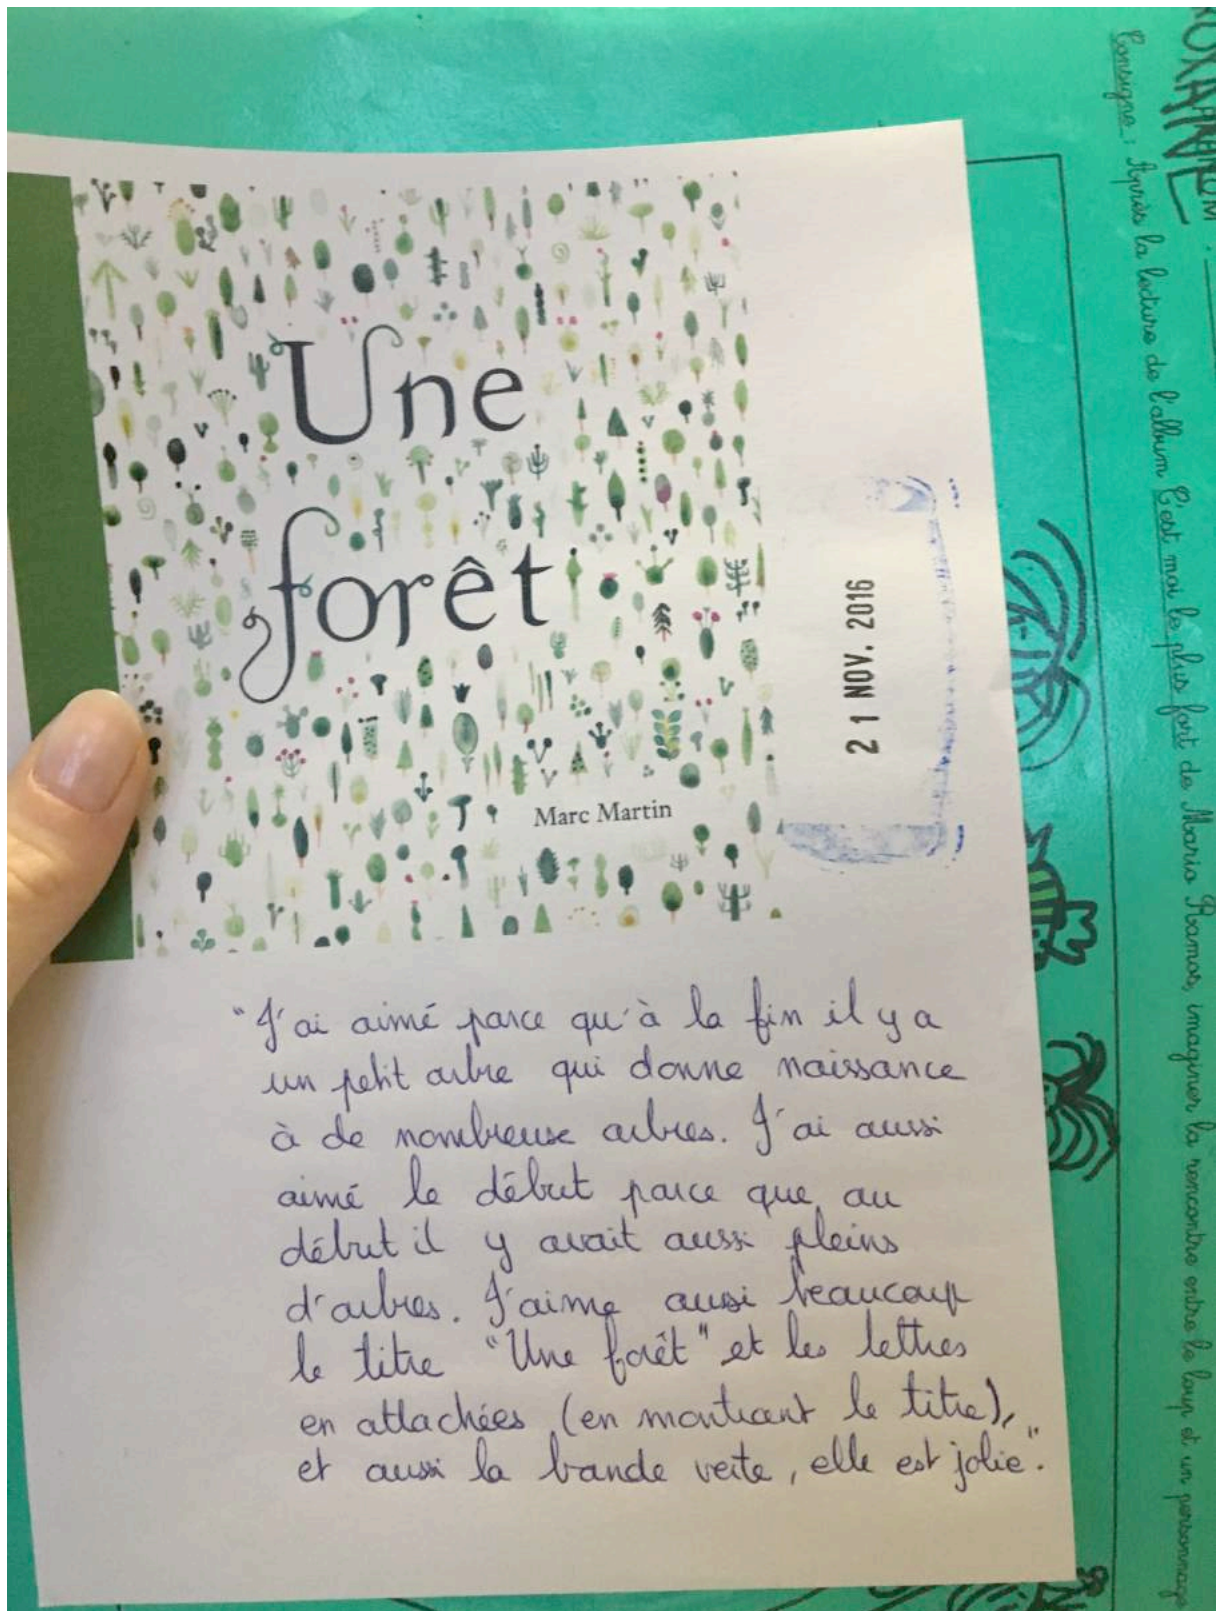 Une
forêt
Marc Martin
21 NOV. 2016
"J'ai aimé parce qu'à la fin il y a
un petit arbre qui donne naissance
à de nombreux arbres. J'ai aussi
aimé le début parce que au
début il y avait aussi pleins
d'arbres. J'aime aussi beaucoup
le titre "Une forêt" et les lettres
en attachées (en montrant le titre),
et aussi la bande verte, elle est jolie".
Consigne : Après la lecture de l'album C'est moi le plus fort de Mario Ramos, imaginer la rencontre entre le loup et un personnage